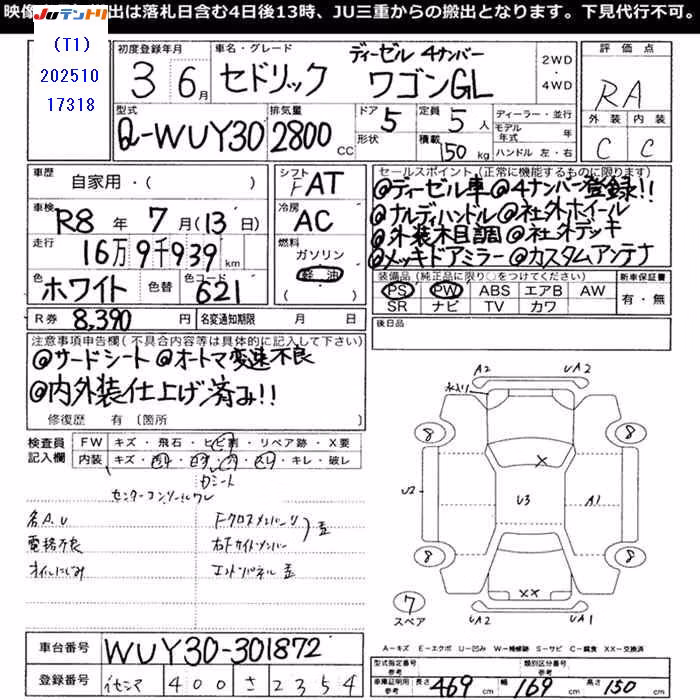 映像 出は落札日含む4日後13時、JU三重からの搬出となります。下見代行不可。
JUテントリ
(T1)
202510
17318
初度登録年月 車名・グレード ディーゼル 4ナンバー 2WD・4WD 評価点
3 6月 セドリック ワゴンGL RA
型式 排気量 ドア 定員 ディーラー・並行 外装 内装
Q-WUY30 2800CC 5 5人 モデル年式 年 C C
形状 積載 150kg ハンドル 左・右
車歴 自家用・( ) シフト FAT セールスポイント(正常に機能するものに限ります)
車検 R8年7月(13日) 冷房 AC
@ディーゼル車@4ナンバー登録!!
@ナルディハンドル@社外ホイール
走行 16万9千939km 燃料 ガソリン 軽油 ( )
@外装木目調@社外デッキ
@メッキドアミラー@カスタムアンテナ
色 ホワイト 色替 色コード 621
装備品(純正品に限り○をつけてください) 新車保証書
PS PW ABS エアB AW 有・無
SR ナビ TV カワ
R券 8,390円 名変通知期限 月 日
後日品
注意事項申告欄(不具合内容等は具体的に記入して下さい)
@サードシート@オートマ変速不良
@内外装仕上げ済み!!
修復歴 有 〔箇所 〕
検査員記入欄 FW キズ・飛石・ヒビ割・リペア跡・X要
内装 キズ・・・・スレ・キレ・破レ
シート
センターコンソールワレ
各A.U
電格不良
オイルにじみ
Fクロスメンバー
右下サイドメンバー
エンドパネル
A2 UA2
水入り
8 8
X
U2 U3 A1
8 8
XX
7
スペア
UA2 UA1
A=キズ E=エクボ U=凹み W=補修跡 S=サビ C=腐食 XX=交換済
車台番号 WUY30-301872
型式指定番号 類別区分番号
登録番号 400さ2354
車庫証明用参考 長さ 469cm 参考 幅 169cm 参考 高さ 150cm